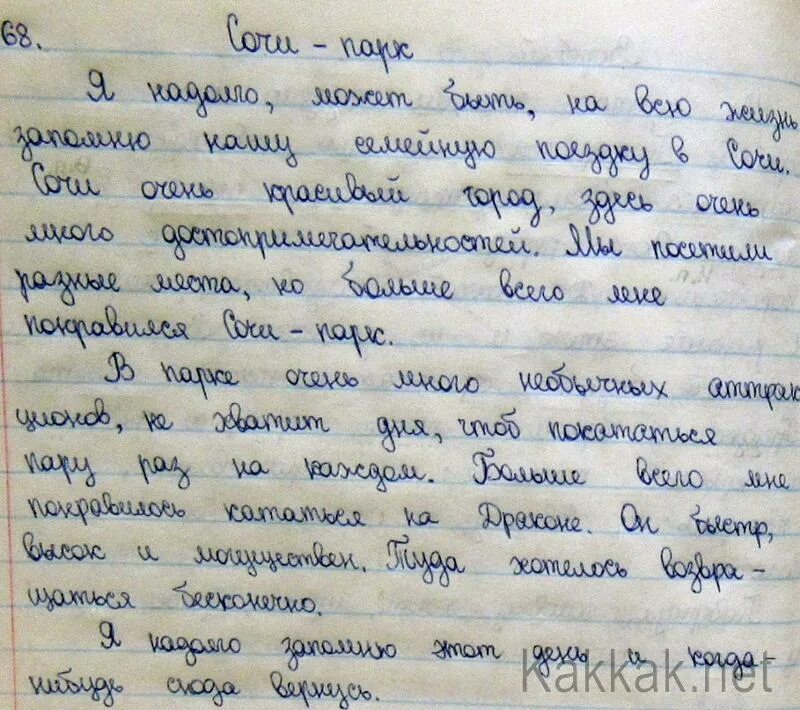 68. Сочи - парк
Я надолго, может быть, на всю жизнь
запомню нашу семейную поездку в Сочи.
Сочи очень красивый город, здесь очень
много достопримечательностей. Мы посетили
разные места, но больше всего мне
понравился Сочи - парк.
В парке очень много необычных аттрак
ционов, не хватит дня, чтоб покататься
пару раз на каждом. Больше всего мне
понравилось кататься на Драконе. Он быстр,
высок и могуществен. Туда хотелось возвра-
щаться бесконечно.
Я надолго запомню этот день и когда-
нибудь сюда вернусь.
Kakkak.net